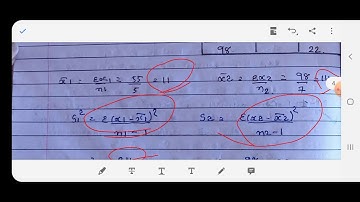 98 22
x̄1 = Σx1/n1 = 55/5 = 11 x̄2 = Σx2/n2 = 98/7
S1² = Σ(x1 - x̄1)²/n1 - 1 S2 = Σ(x2 - x̄2)²/n2 - 1